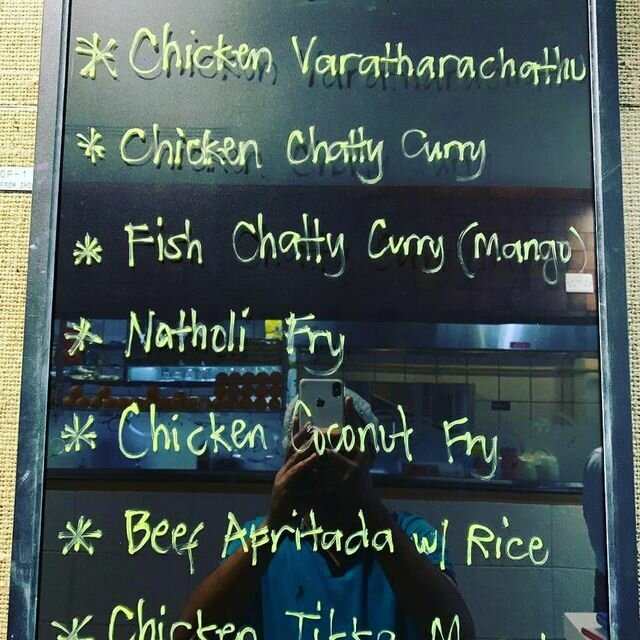 * Chicken Varatharachathu
* Chicken Chatty Curry
* Fish Chatty Curry (Mango)
* Natholi Fry
* Chicken Coconut Fry
* Beef Afritada w/ Rice
* Chicken Tikka